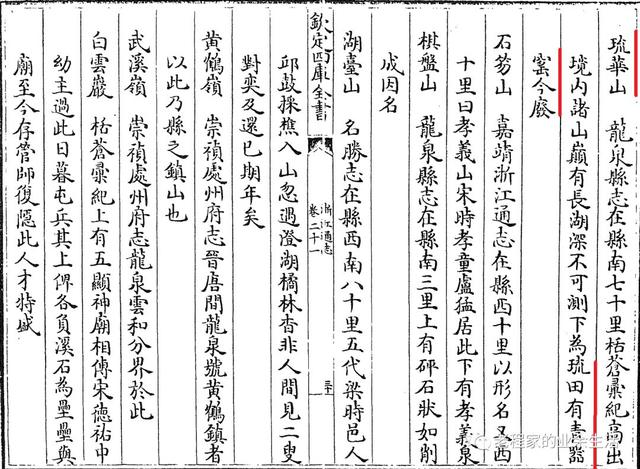 琉華山　龍泉縣志在縣南七十里栝蒼彙紀高出
境内諸山巔有長湖深不可測下為琉田有青器
窰今廢
石笏山　嘉靖浙江通志在縣西十里以形名又西
十里曰孝義山宋時孝童盧猛居此下有孝義泉
棋盤山　龍泉縣志在縣南三里上有砰石狀如削
成因名
湖臺山　名勝志在縣西南八十里五代梁時邑人
欽定四庫全書
浙江通志
卷二十一
邱鼓採樵入山忽遇澄湖橘林杳非人間見二叟
對奕及還已期年矣
黄鶴嶺　崇禎處州府志晉唐間龍泉號黄鶴鎮者
以此乃縣之鎮山也
武溪嶺　崇禎處州府志龍泉雲和分界於此
白雲巖　栝蒼彙紀上有五顯神廟相傳宋德祐中
幼主過此日暮屯兵其上俾各負溪石為壘壘與
廟至今存管師復隱此人才特盛
老程家的业余生活